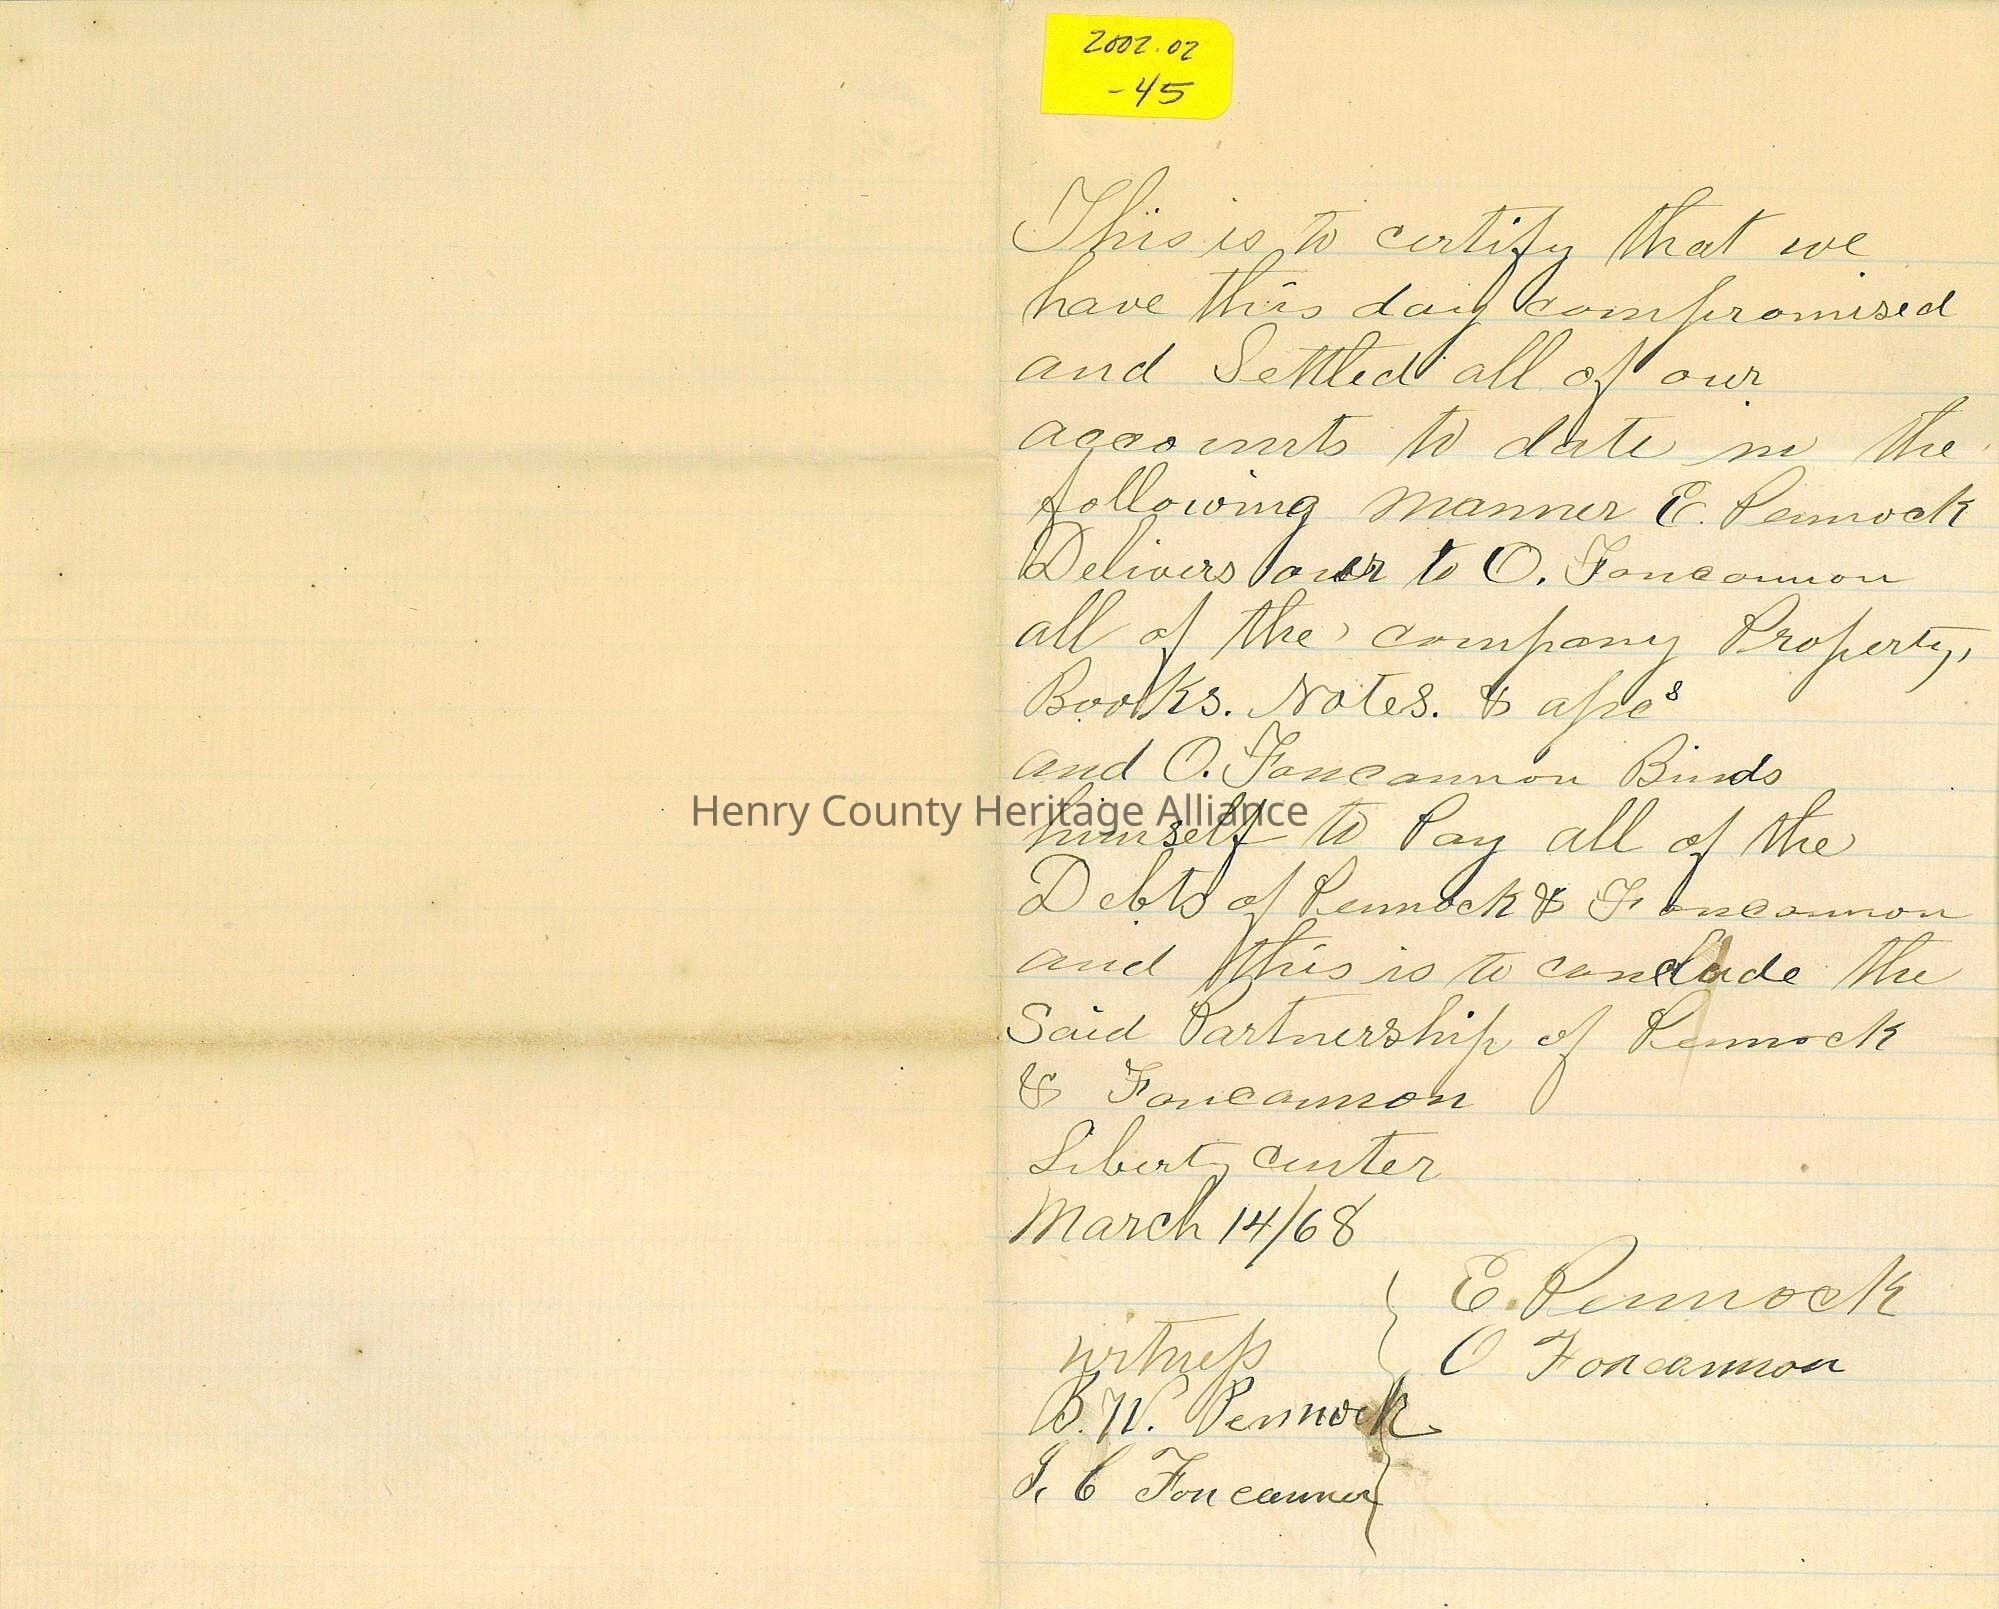 2002.02
-45
This is to certify that we
have this day compromised
and Settled all of our
accounts to date in the
following manner E. Pennock
Delivers over to O. Foncannon
all of the company Property,
Books. Notes. &
and O. Foncannon Binds
Henry County Heritage Alliance
himself to Pay all of the
Debts of Pennock & Foncannon
and this is to conclude the
Said Partnership of Pennock
& Foncannon
Liberty center
March 14/68
E. Pennock
witness
O Foncannon
B. W. Pennock
C Foncannon